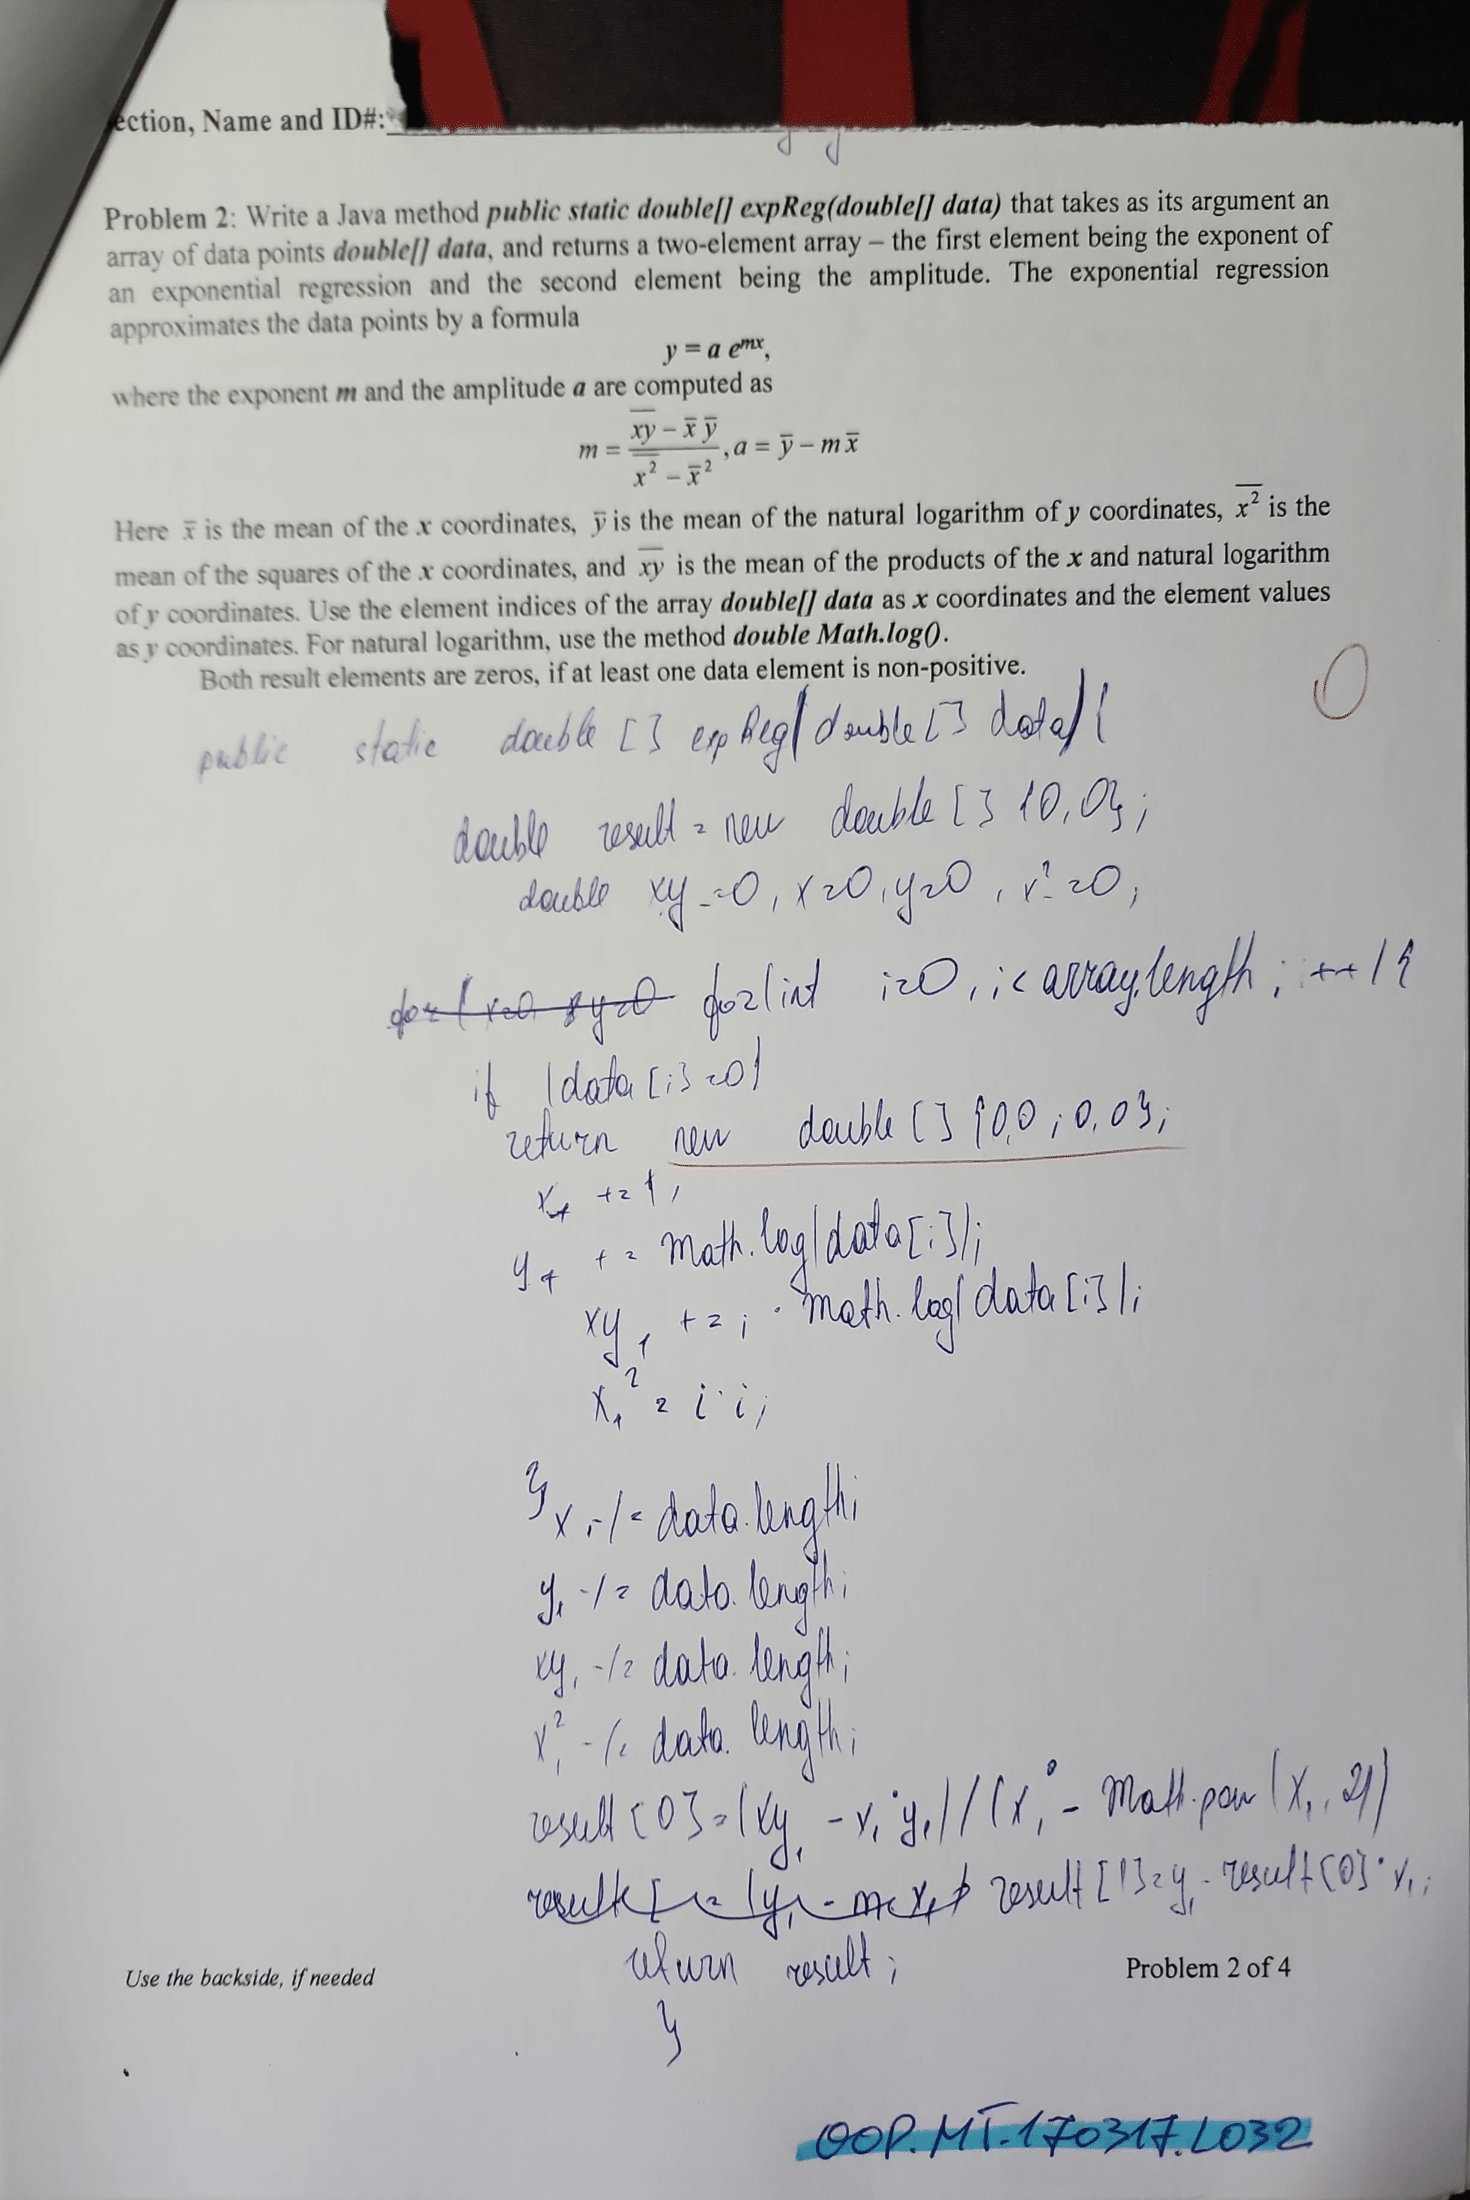 ection, Name and ID#:
Problem 2: Write a Java method public static double[] expReg(double[] data) that takes as its argument an
array of data points double[] data, and returns a two-element array – the first element being the exponent of
an exponential regression and the second element being the amplitude. The exponential regression
approximates the data points by a formula
y = a e^{mx},
where the exponent m and the amplitude a are computed as
m = \frac{\overline{xy} - \bar{x} \bar{y}}{\overline{x^2} - \bar{x}^2}, a = \bar{y} - m \bar{x}
Here x̄ is the mean of the x coordinates, ȳ is the mean of the natural logarithm of y coordinates, \overline{x^2} is the
mean of the squares of the x coordinates, and \overline{xy} is the mean of the products of the x and natural logarithm
of y coordinates. Use the element indices of the array double[] data as x coordinates and the element values
as y coordinates. For natural logarithm, use the method double Math.log().
Both result elements are zeros, if at least one data element is non-positive.
0
public static double [] expReg(double[] data) {
double result = new double [] {0,0};
double xy_=0, x=0, y=0, x²=0;
for(int i=0, i< array.length; ++) {
if (data [i] =0)
return new double [] {0,0; 0,0};
x₁ += 1;
y₁ += Math.log(data[i]);
xy₁ += i · Math.log(data[i]);
x₁² = i·i;
}
x₁ -/= data.length;
y₁ -/= data.length;
xy₁ -/= data.length;
x₁² -/= data.length;
result [0] = (xy₁ - x₁·y₁) / (x₁² - Math.pow (x₁, 2))
result [1] = y₁ - result[0]·x₁;
return result;
}
Use the backside, if needed
Problem 2 of 4
OOP.MT.170317.L032